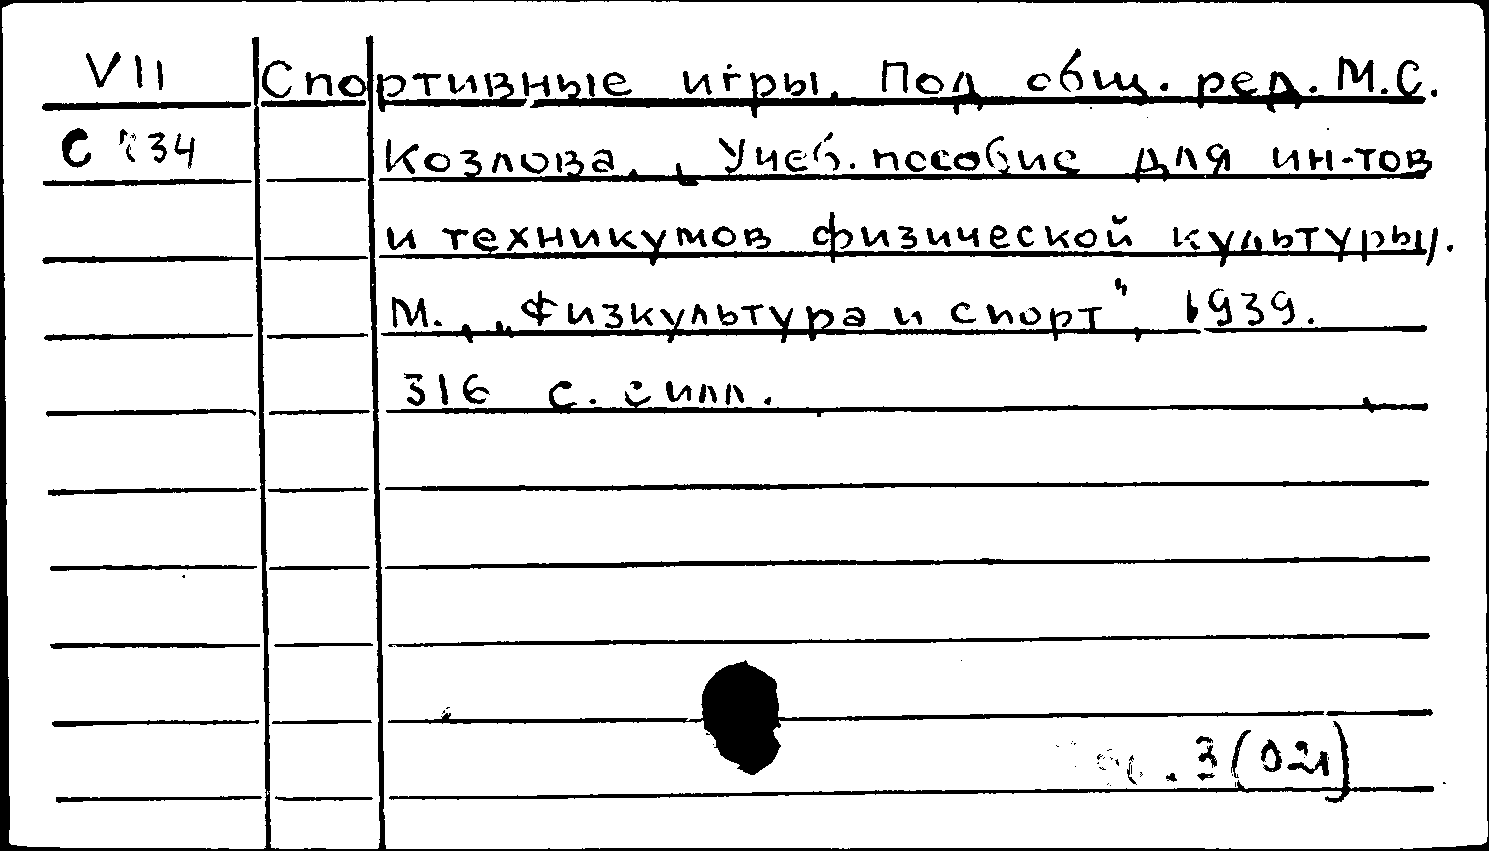 VII
Спортивные игры. Под общ. ред. М.С.
С 34
Козлова., Учеб. пособие для ин-тов
и техникумов физической культуры.
М., „Физкультура и спорт", 1939.
316 с. с илл.
.3(021)